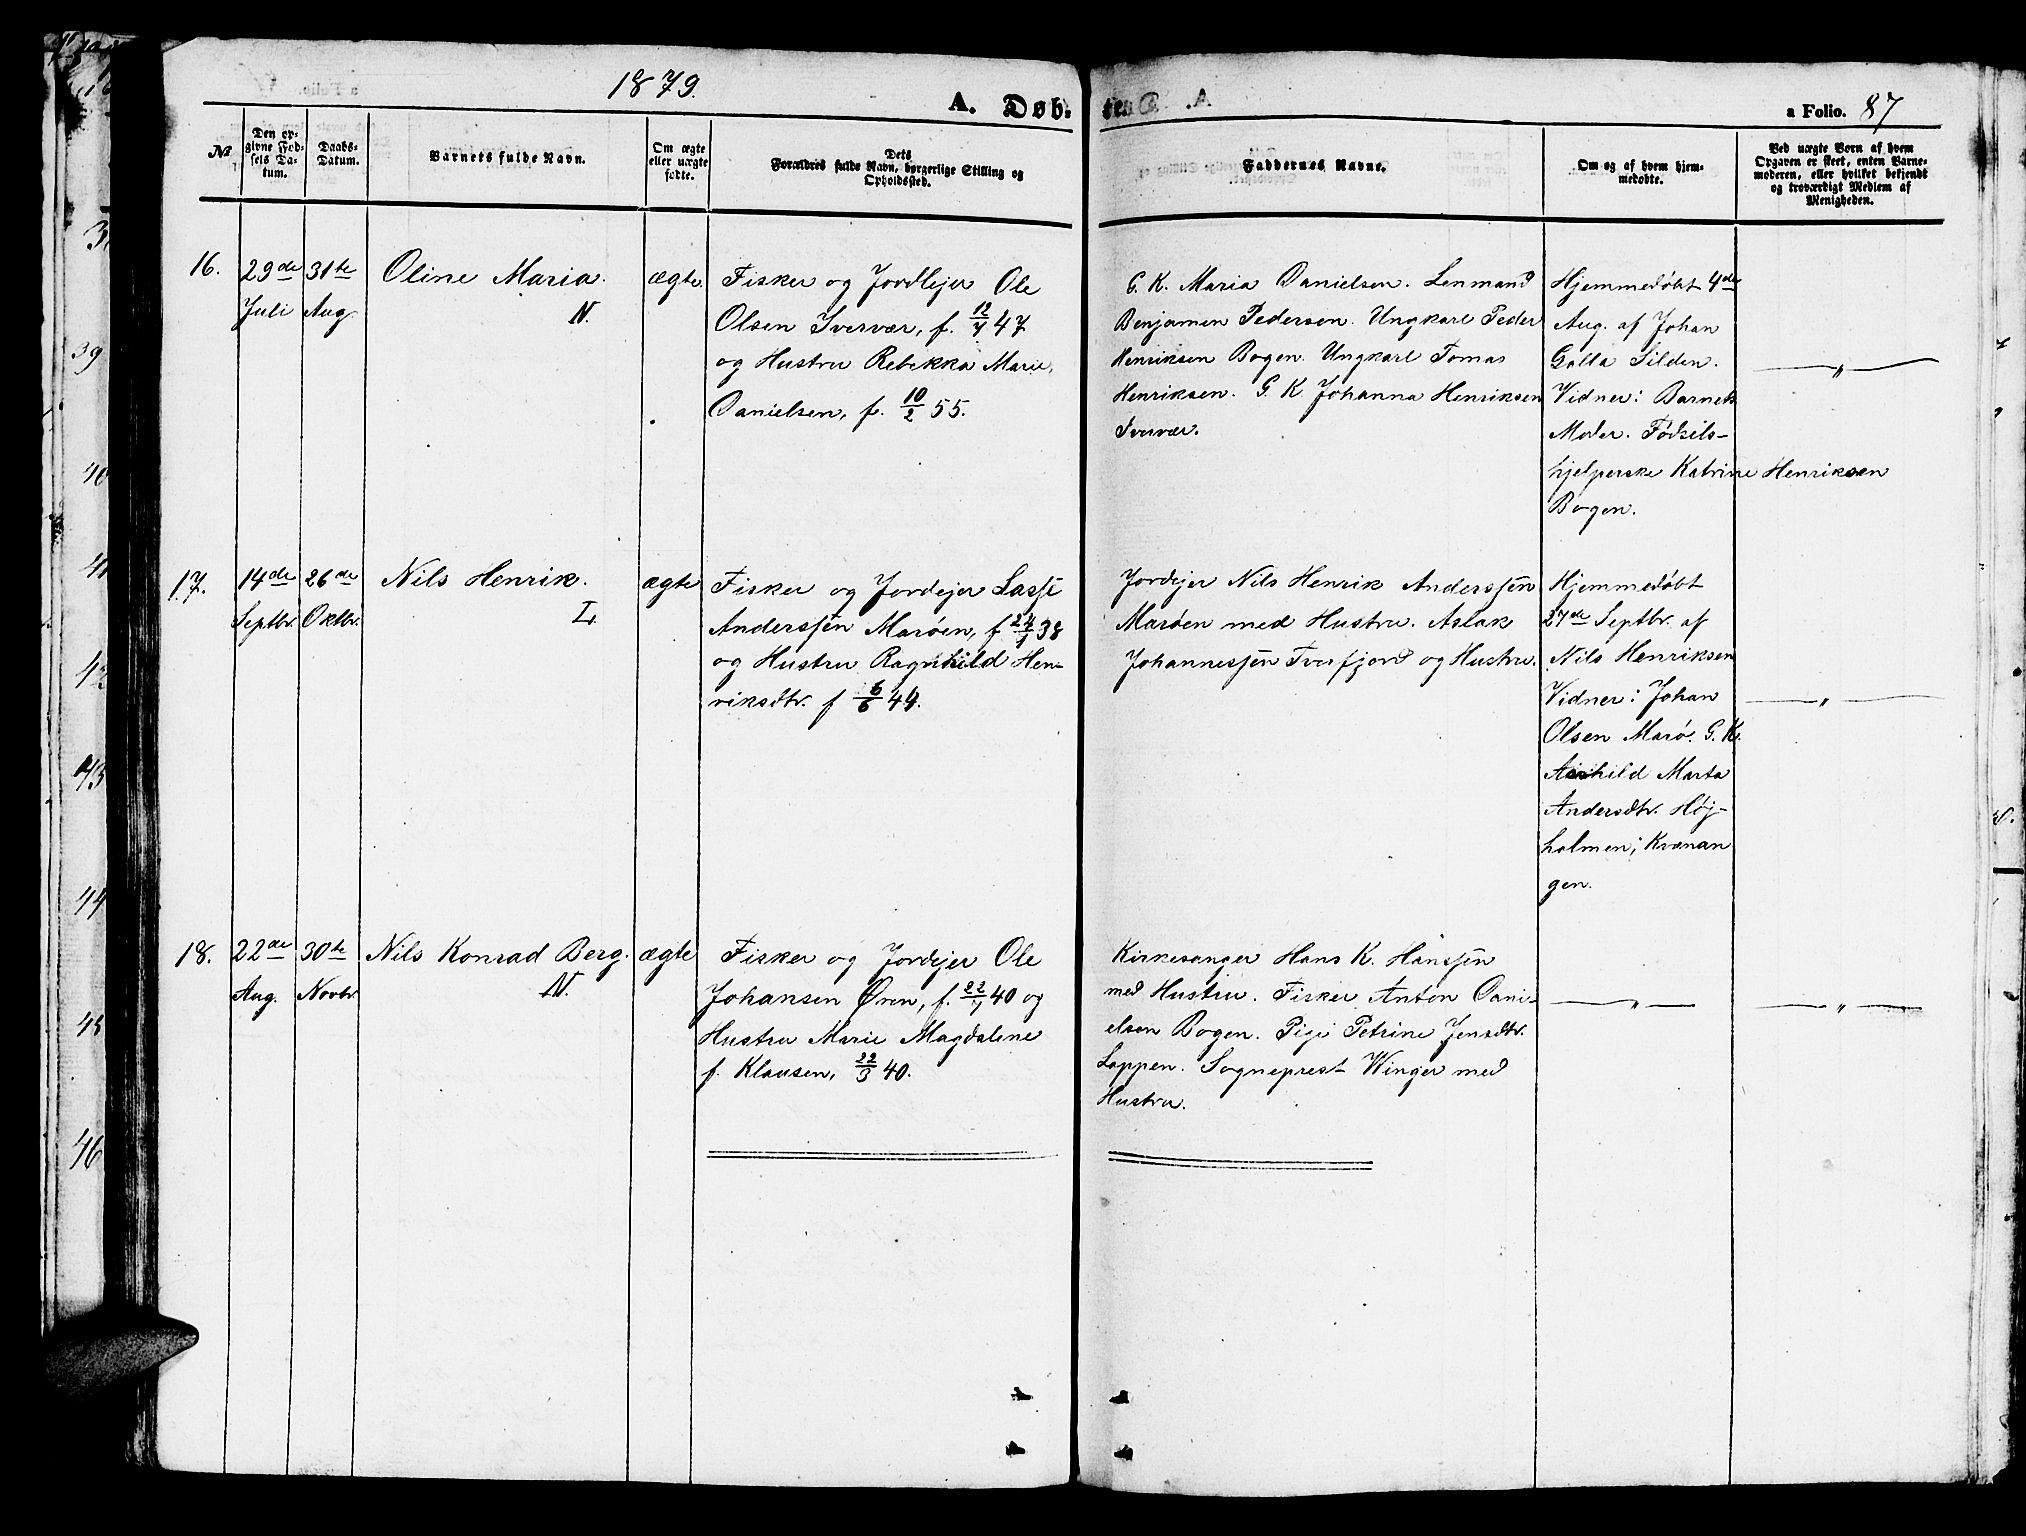 1879.
A. Døb-
te.
a Folio. 87
№
Den op-
givne Fød-
sels Da-
tum.
Daabs-
Datum.
Barnets fulde Navn.
Om ægte
eller uægte
fødte.
Dets
Forældres fulde Navn, borgerlige Stilling og
Opholdssted.
Faddernes Navne.
Om og af hvem hjem-
medøbte.
Ved uægte Børn af hvem
Opgaven er skeet, enten Barne-
moderen, eller hvilket bekjendt
og troværdigt Medlem af
Menigheden.
16.
29de
Juli
31te
Aug
Oline Maria.
N.
ægte
Fisker og Jordlejer Ole
Olsen Ivervær, f. 12/7 47
og Hustru Rebekka Marie,
Danielsen, f. 10/2 55.
G. K. Maria Danielsen. Lenmand
Benjamen Pedersen. Ungkarl Peder
Henriksen Bogen. Ungkarl Tomas
Henriksen. G. K. Johanna Henriksen
Ivervær.
Hjemmedøbt 4de
Aug. af Johan
Galla Silden.
Vidner: Barnets
Moder. Fødsels-
hjelperske Katrine Henriksen
Bogen.
— „ —
17.
14de
Septbr.
26de
Oktbr.
Nils Henrik.
L.
ægte
Fisker og Jordejer Lasse
Anderssen Marøen, f 24/1 38
og Hustru Ragnhild Hen-
riksdtr. f 6/6 49.
Jordejer Nils Henrik Anderssen
Marøen med Hustru. Aslak
Johannessen Tverfjord og Hustru.
Hjemmedøbt
27de Septbr. af
Nils Henriksen
Vidner: Johan
Olsen Marø. G. K.
Marta
Andersdtr. Høj-
holmen; Kvænan
gen.
— „ —
18.
22de
Aug.
30te
Novbr.
Nils Konrad Berg.
N.
ægte
Fisker og Jordejer Ole
Johansen Øren, f. 22/7 40 og
Hustru Marie Magdalene
f. Klausen, 22/3 40.
Kirkesanger Hans K. Hanssen
med Hustru. Fisker Anton Dani-
elsen Bogen. Pige Petrine Jensdtr.
Loppen. Sogneprest Winger med
Hustru.
— „ —
— „ —
39
40
41
42
43
44
45
46